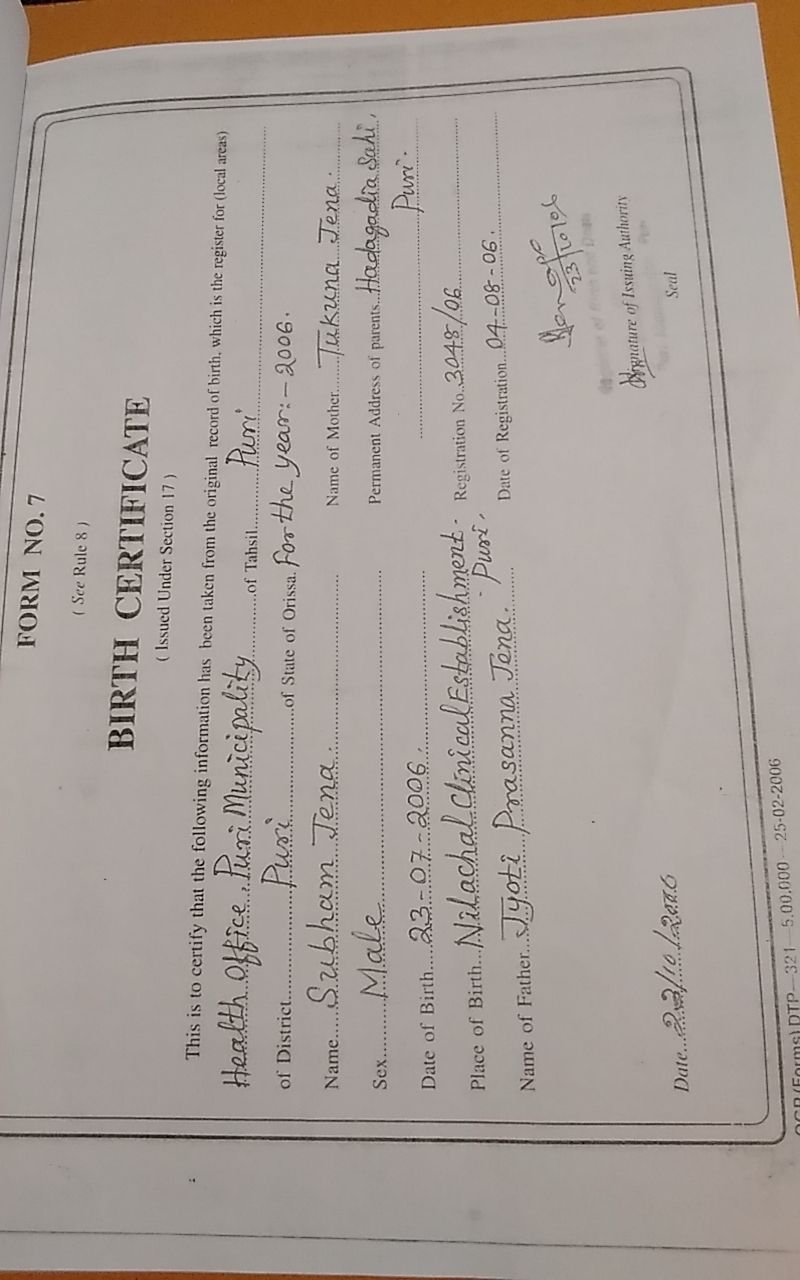 FORM NO. 7
( See Rule 8 )
BIRTH CERTIFICATE
( Issued Under Section 17 )
This is to certify that the following information has been taken from the original record of birth, which is the register for (local areas)
Health Office, Puri Municipality of Tahsil Puri
of District Puri of State of Orissa. For the year:- 2006.
Name Subham Jena.
Name of Mother Tukuna Jena.
Sex Male
Permanent Address of parents Hadagadia Sahi,
Puri.
Date of Birth 23-07-2006.
Place of Birth Nilachal Clinical Establishment. Puri,
Registration No. 3048/06
Name of Father Jyoti Prasanna Jena.
Date of Registration 04-08-06.
23/10/06
Signature of Issuing Authority
Seal
Date /10/2006
(Forms) DTP—321—5,00,000—25-02-2006